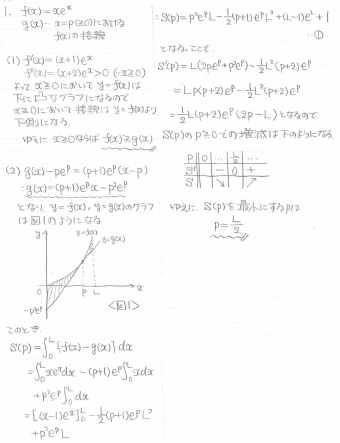 1. f(x)=xe^x
g(x)… x=p(≥0)における
f(x)の接線
(1) f'(x)=(x+1)e^x
f''(x)=(x+2)e^x>0 (∵x≥0)
よって x≥0において y=f(x)は
下に凸なグラフになるので
x≥0において接線は y=f(x)より
下側になる.
ゆえに x≥0ならば f(x)≥g(x)
(2) g(x)-pe^p=(p+1)e^p(x-p)
∴g(x)=(p+1)e^p x-p²e^p
となり y=f(x), y=g(x)のグラフ
は図1のようになる
y
y=f(x)
y=g(x)
0
p
L
x
-p²e^p
<図1>
このとき.
S(p)=∫₀^L{f(x)-g(x)}dx
=∫₀^L xe^x dx-(p+1)e^p∫₀^L xdx
+p²e^p∫₀^L dx
=[(x-1)e^x]₀^L-½(p+1)e^p L²
+p²e^p L
∴S(p)=p²e^p L-½(p+1)e^p L²+(L-1)e^L+1
①
となる。ここで.
S'(p)=L(2pe^p+p²e^p)-½L²(p+2)e^p
=Lp(p+2)e^p-½L²(p+2)e^p
=½L(p+2)e^p(2p-L)となるので.
S(p)の p≥0での増減は下のようになる.
p 0 … L/2 …
S' - 0 +
S ↘ ↗
ゆえに. S(p)を最小にするpは
p=L/2